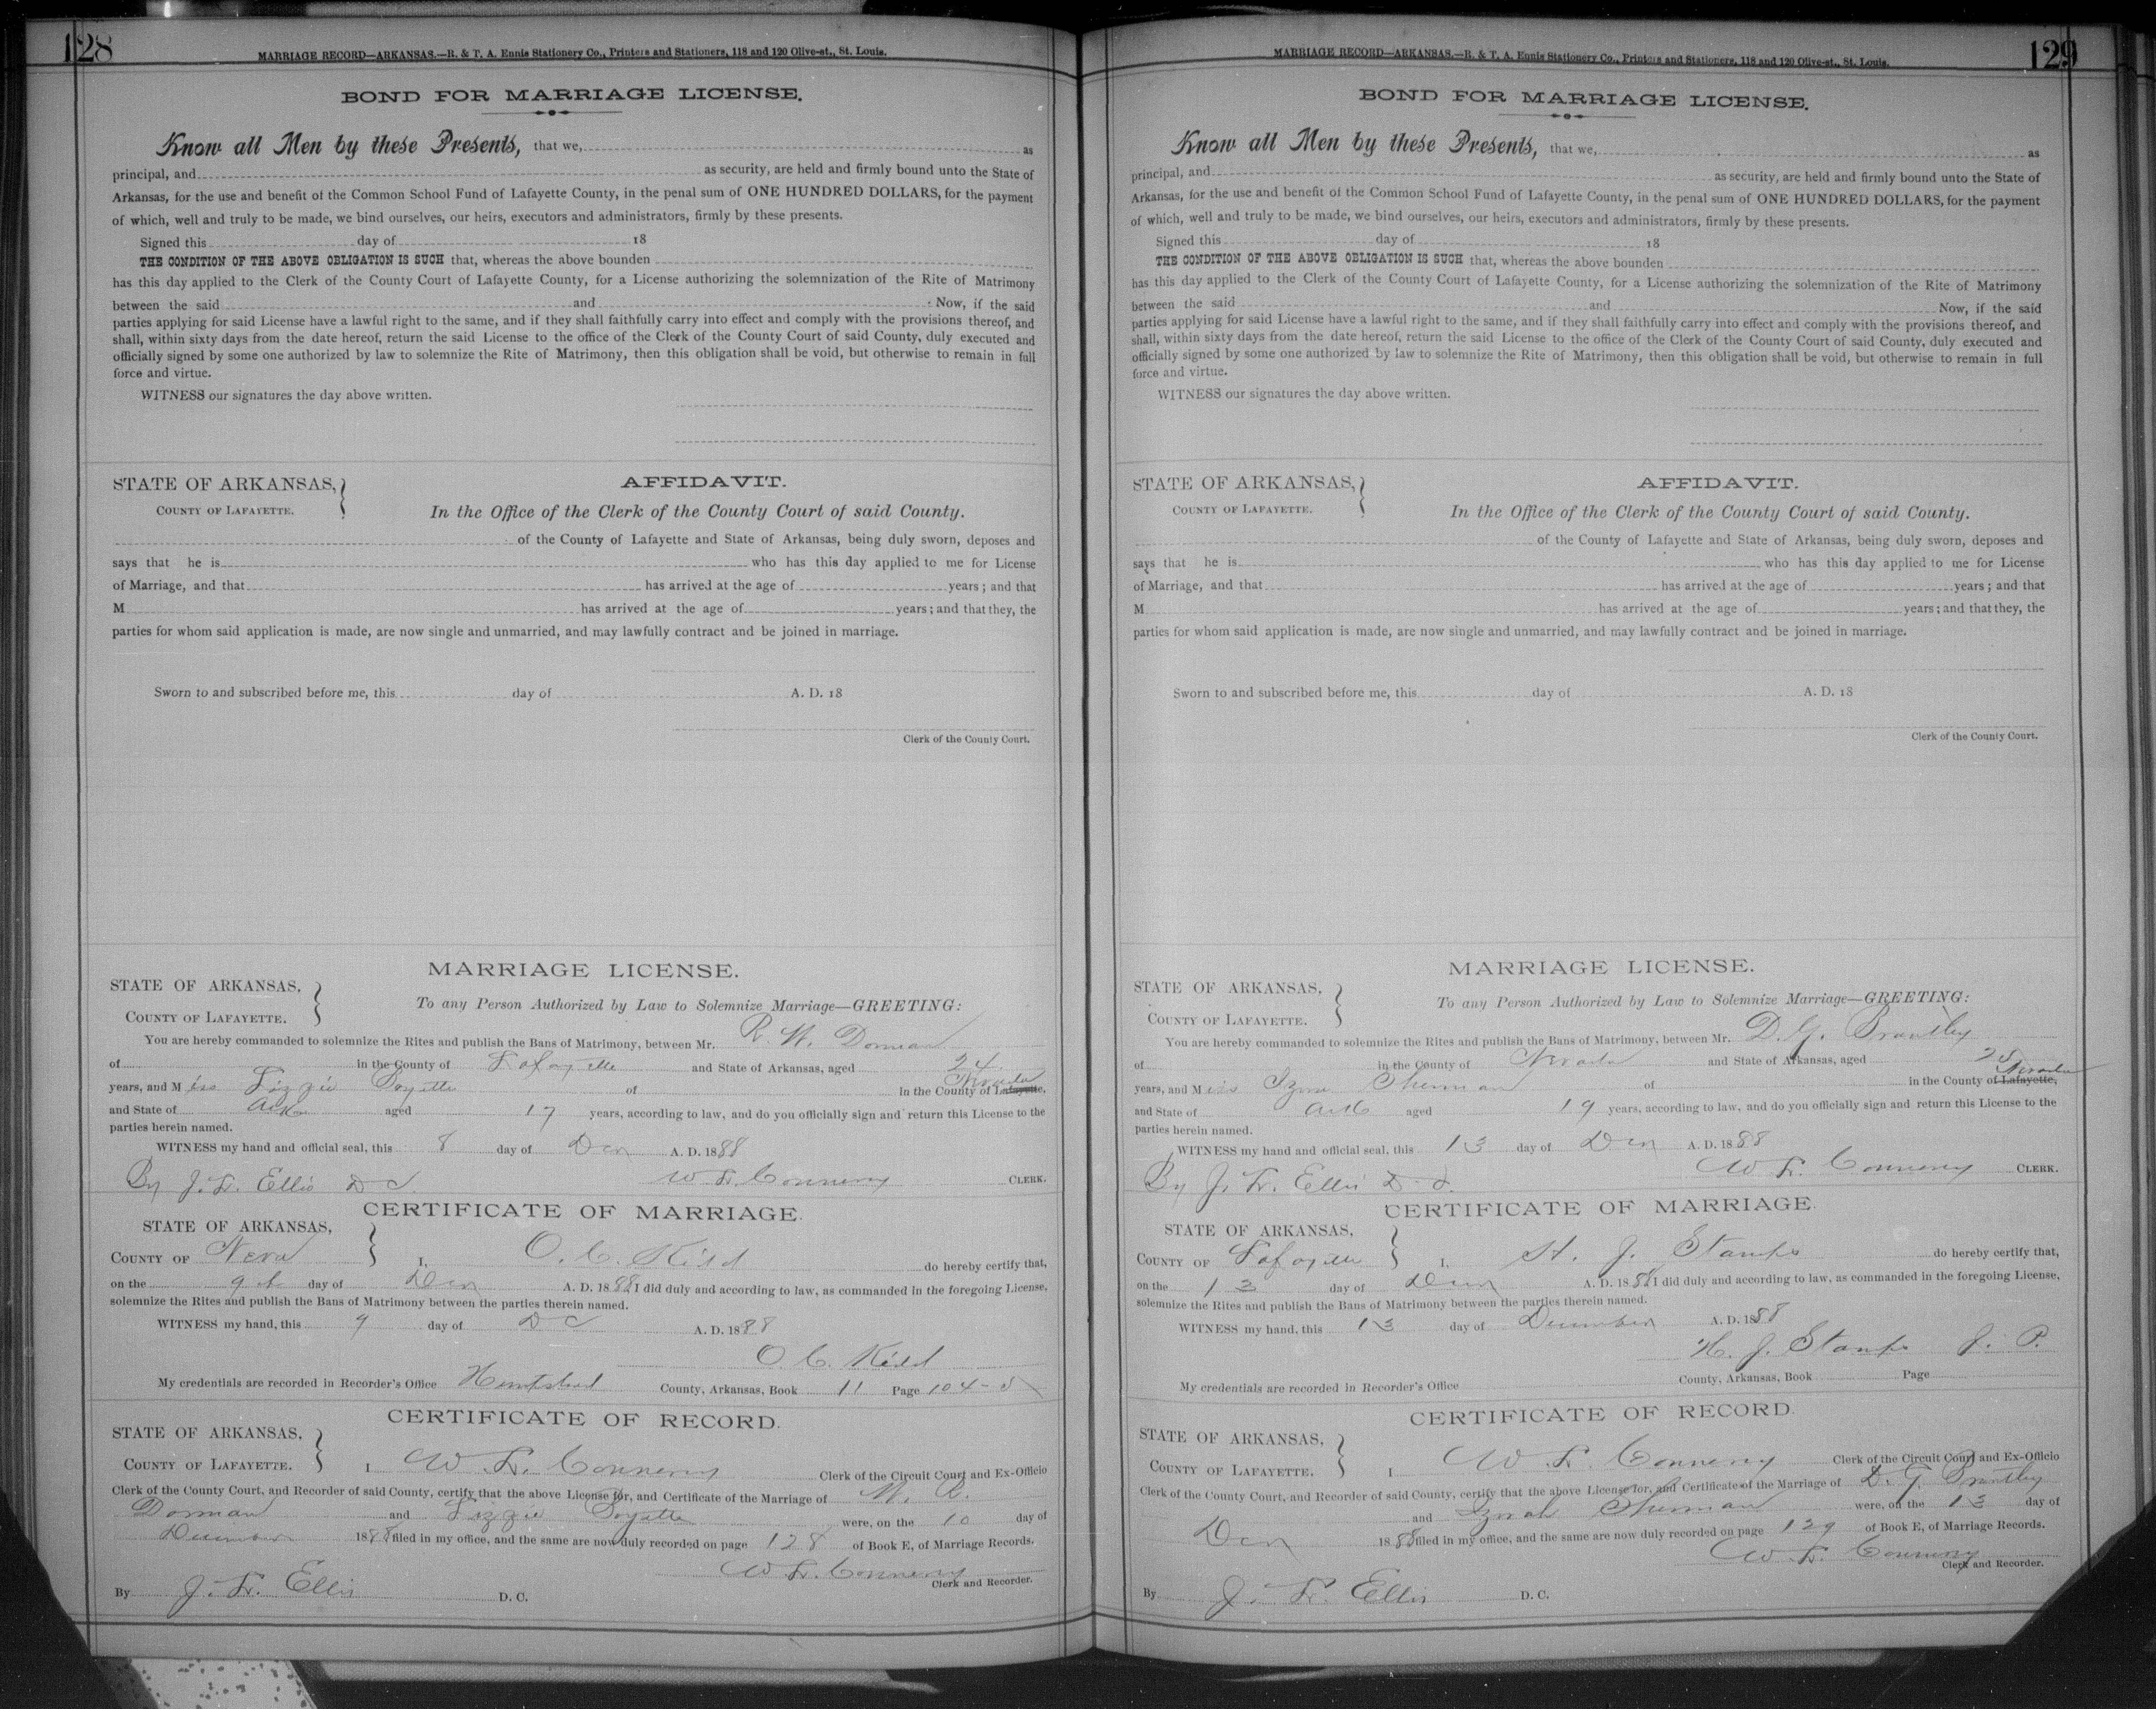 128
MARRIAGE RECORD—ARKANSAS.—R. & T. A. Ennis Stationery Co., Printers and Stationers, 118 and 120 Olive-st., St. Louis.
BOND FOR MARRIAGE LICENSE.
Know all Men by these Presents, that we, as
principal, and as security, are held and firmly bound unto the State of
Arkansas, for the use and benefit of the Common School Fund of Lafayette County, in the penal sum of ONE HUNDRED DOLLARS, for the payment
of which, well and truly to be made, we bind ourselves, our heirs, executors and administrators, firmly by these presents.
Signed this day of 18
THE CONDITION OF THE ABOVE OBLIGATION IS SUCH that, whereas the above bounden
has this day applied to the Clerk of the County Court of Lafayette County, for a License authorizing the solemnization of the Rite of Matrimony
between the said and Now, if the said
parties applying for said License have a lawful right to the same, and if they shall faithfully carry into effect and comply with the provisions thereof, and
shall, within sixty days from the date hereof, return the said License to the office of the Clerk of the County Court of said County, duly executed and
officially signed by some one authorized by law to solemnize the Rite of Matrimony, then this obligation shall be void, but otherwise to remain in full
force and virtue.
WITNESS our signatures the day above written.
STATE OF ARKANSAS,
COUNTY OF LAFAYETTE.
AFFIDAVIT.
In the Office of the Clerk of the County Court of said County.
of the County of Lafayette and State of Arkansas, being duly sworn, deposes and
says that he is who has this day applied to me for License
of Marriage, and that has arrived at the age of years; and that
M has arrived at the age of years; and that they, the
parties for whom said application is made, are now single and unmarried, and may lawfully contract and be joined in marriage.
Sworn to and subscribed before me, this day of A. D. 18
Clerk of the County Court.
MARRIAGE LICENSE.
STATE OF ARKANSAS,
COUNTY OF LAFAYETTE.
To any Person Authorized by Law to Solemnize Marriage—GREETING:
You are hereby commanded to solemnize the Rites and publish the Bans of Matrimony, between Mr. R. W. Dorman
of in the County of Lafayette and State of Arkansas, aged 24
years, and Miss Lizzie of in the County of Lafayette, Nevada
and State of Ark aged 17 years, according to law, and do you officially sign and return this License to the
parties herein named.
WITNESS my hand and official seal, this 8 day of Dec A. D. 1888
By J. L. Ellis D C W L Connevey CLERK.
CERTIFICATE OF MARRIAGE.
STATE OF ARKANSAS,
COUNTY OF Neva I, O. C. Kidd do hereby certify that,
on the 9th day of Dec A. D. 1888 I did duly and according to law, as commanded in the foregoing License,
solemnize the Rites and publish the Bans of Matrimony between the parties therein named.
WITNESS my hand, this 9 day of Dc A. D. 1888
O. C. Kidd
My credentials are recorded in Recorder's Office Hempstead County, Arkansas, Book 11 Page 104-5
CERTIFICATE OF RECORD.
STATE OF ARKANSAS,
COUNTY OF LAFAYETTE. I W L. Connevey Clerk of the Circuit Court and Ex-Officio
Clerk of the County Court, and Recorder of said County, certify that the above License for, and Certificate of the Marriage of W. R.
Dorman and Lizzie were, on the 10 day of
December 1888 filed in my office, and the same are now duly recorded on page 128 of Book E, of Marriage Records.
W L. Connevey
Clerk and Recorder.
By J. L. Ellis D. C.
129
MARRIAGE RECORD—ARKANSAS.—R. & T. A. Ennis Stationery Co., Printers and Stationers, 118 and 120 Olive-st., St. Louis.
BOND FOR MARRIAGE LICENSE.
Know all Men by these Presents, that we, as
principal, and as security, are held and firmly bound unto the State of
Arkansas, for the use and benefit of the Common School Fund of Lafayette County, in the penal sum of ONE HUNDRED DOLLARS, for the payment
of which, well and truly to be made, we bind ourselves, our heirs, executors and administrators, firmly by these presents.
Signed this day of 18
THE CONDITION OF THE ABOVE OBLIGATION IS SUCH that, whereas the above bounden
has this day applied to the Clerk of the County Court of Lafayette County, for a License authorizing the solemnization of the Rite of Matrimony
between the said and Now, if the said
parties applying for said License have a lawful right to the same, and if they shall faithfully carry into effect and comply with the provisions thereof, and
shall, within sixty days from the date hereof, return the said License to the office of the Clerk of the County Court of said County, duly executed and
officially signed by some one authorized by law to solemnize the Rite of Matrimony, then this obligation shall be void, but otherwise to remain in full
force and virtue.
WITNESS our signatures the day above written.
STATE OF ARKANSAS,
COUNTY OF LAFAYETTE.
AFFIDAVIT.
In the Office of the Clerk of the County Court of said County.
of the County of Lafayette and State of Arkansas, being duly sworn, deposes and
says that he is who has this day applied to me for License
of Marriage, and that has arrived at the age of years; and that
M has arrived at the age of years; and that they, the
parties for whom said application is made, are now single and unmarried, and may lawfully contract and be joined in marriage.
Sworn to and subscribed before me, this day of A. D. 18
Clerk of the County Court.
MARRIAGE LICENSE.
STATE OF ARKANSAS,
COUNTY OF LAFAYETTE.
To any Person Authorized by Law to Solemnize Marriage—GREETING:
You are hereby commanded to solemnize the Rites and publish the Bans of Matrimony, between Mr. D. G. Brantley
of in the County of Nevada and State of Arkansas, aged
years, and Miss Sherman of in the County of Lafayette, Nevada
and State of Ark aged 19 years, according to law, and do you officially sign and return this License to the
parties herein named.
WITNESS my hand and official seal, this 13 day of Dec A. D. 1888
By J. L. Ellis D. C. W L. Connevey CLERK.
CERTIFICATE OF MARRIAGE.
STATE OF ARKANSAS,
COUNTY OF Lafayette I, H. J. Stamps do hereby certify that,
on the 13 day of Dec A. D. 1888 I did duly and according to law, as commanded in the foregoing License,
solemnize the Rites and publish the Bans of Matrimony between the parties therein named.
WITNESS my hand, this 13 day of December A. D. 1888
H. J. Stamps J. P.
My credentials are recorded in Recorder's Office County, Arkansas, Book Page
CERTIFICATE OF RECORD.
STATE OF ARKANSAS,
COUNTY OF LAFAYETTE. I W L. Connevey Clerk of the Circuit Court and Ex-Officio
Clerk of the County Court, and Recorder of said County, certify that the above License for, and Certificate of the Marriage of D. G. Brantley
and Sherman were, on the 13 day of
Dec 1888 filed in my office, and the same are now duly recorded on page 129 of Book E, of Marriage Records.
W L. Connevey
Clerk and Recorder.
By J. L. Ellis D. C.